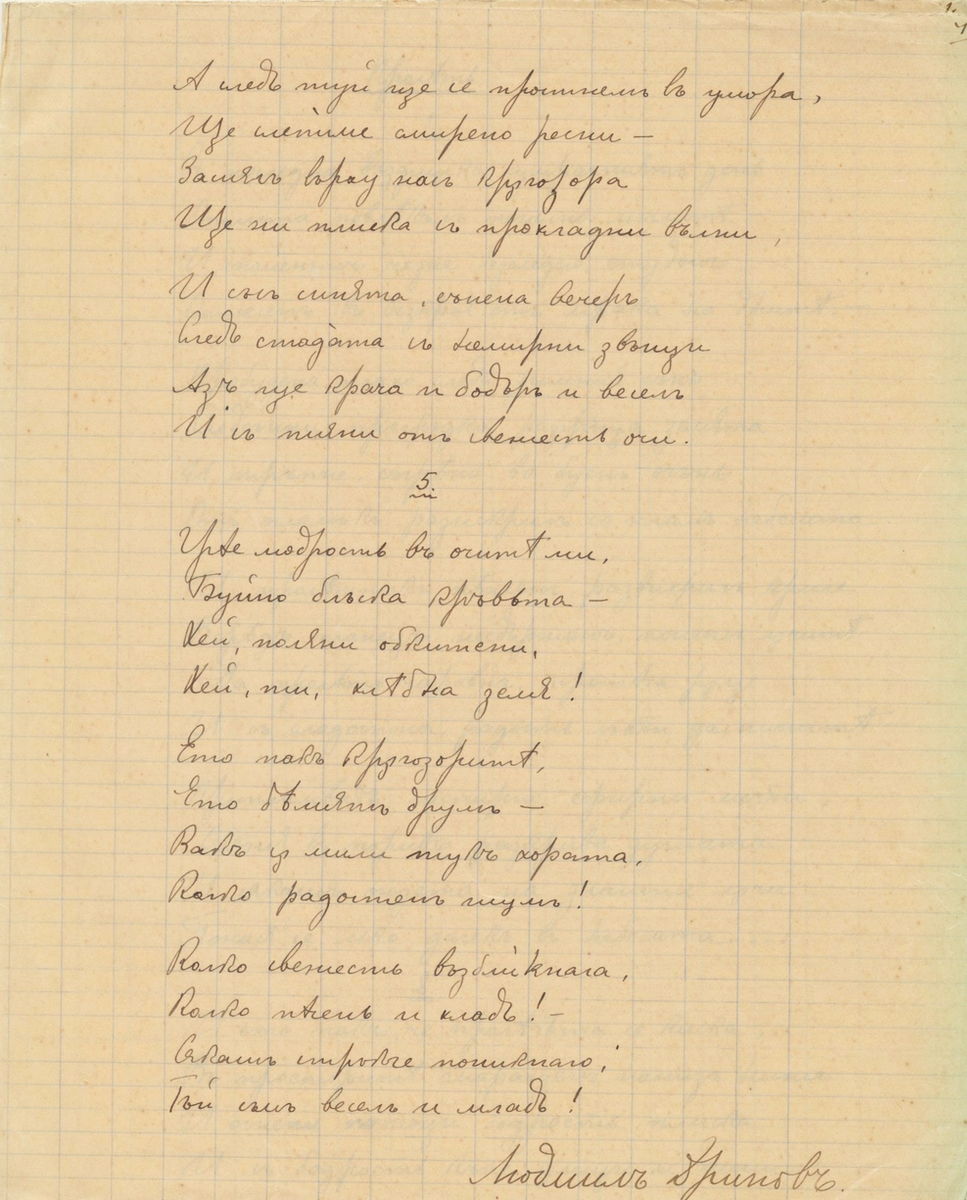 А следъ туй ще се прострем въ умора,
Ще слепиме смирено ресни —
Засмян върху нас кръгозора
Ще ни плиска съ прохладни вълни,
И със синята, сънена вечерь
Следъ стадата съ немирни звънци
Азъ ще крача и бодъръ и веселъ
И съ пияни отъ свежесть очи.
5.
Грѣе мѫдрость въ очитѣ ми,
Буйно блъска кръвьта —
Хей, поляни обкитени,
Хей, ти, хлѣбна земя!
Ето пакъ кръгозоритѣ,
Ето бѣлиятъ друмъ —
Какъ сѫ мили тукъ хората,
Колко радостенъ шумъ!
Колко свежесть възбликнала,
Колко пѣсень и хладъ! —
Сѣкашъ стрѫкче поникнало,
Тъй съмъ веселъ и младъ!
Людмилъ